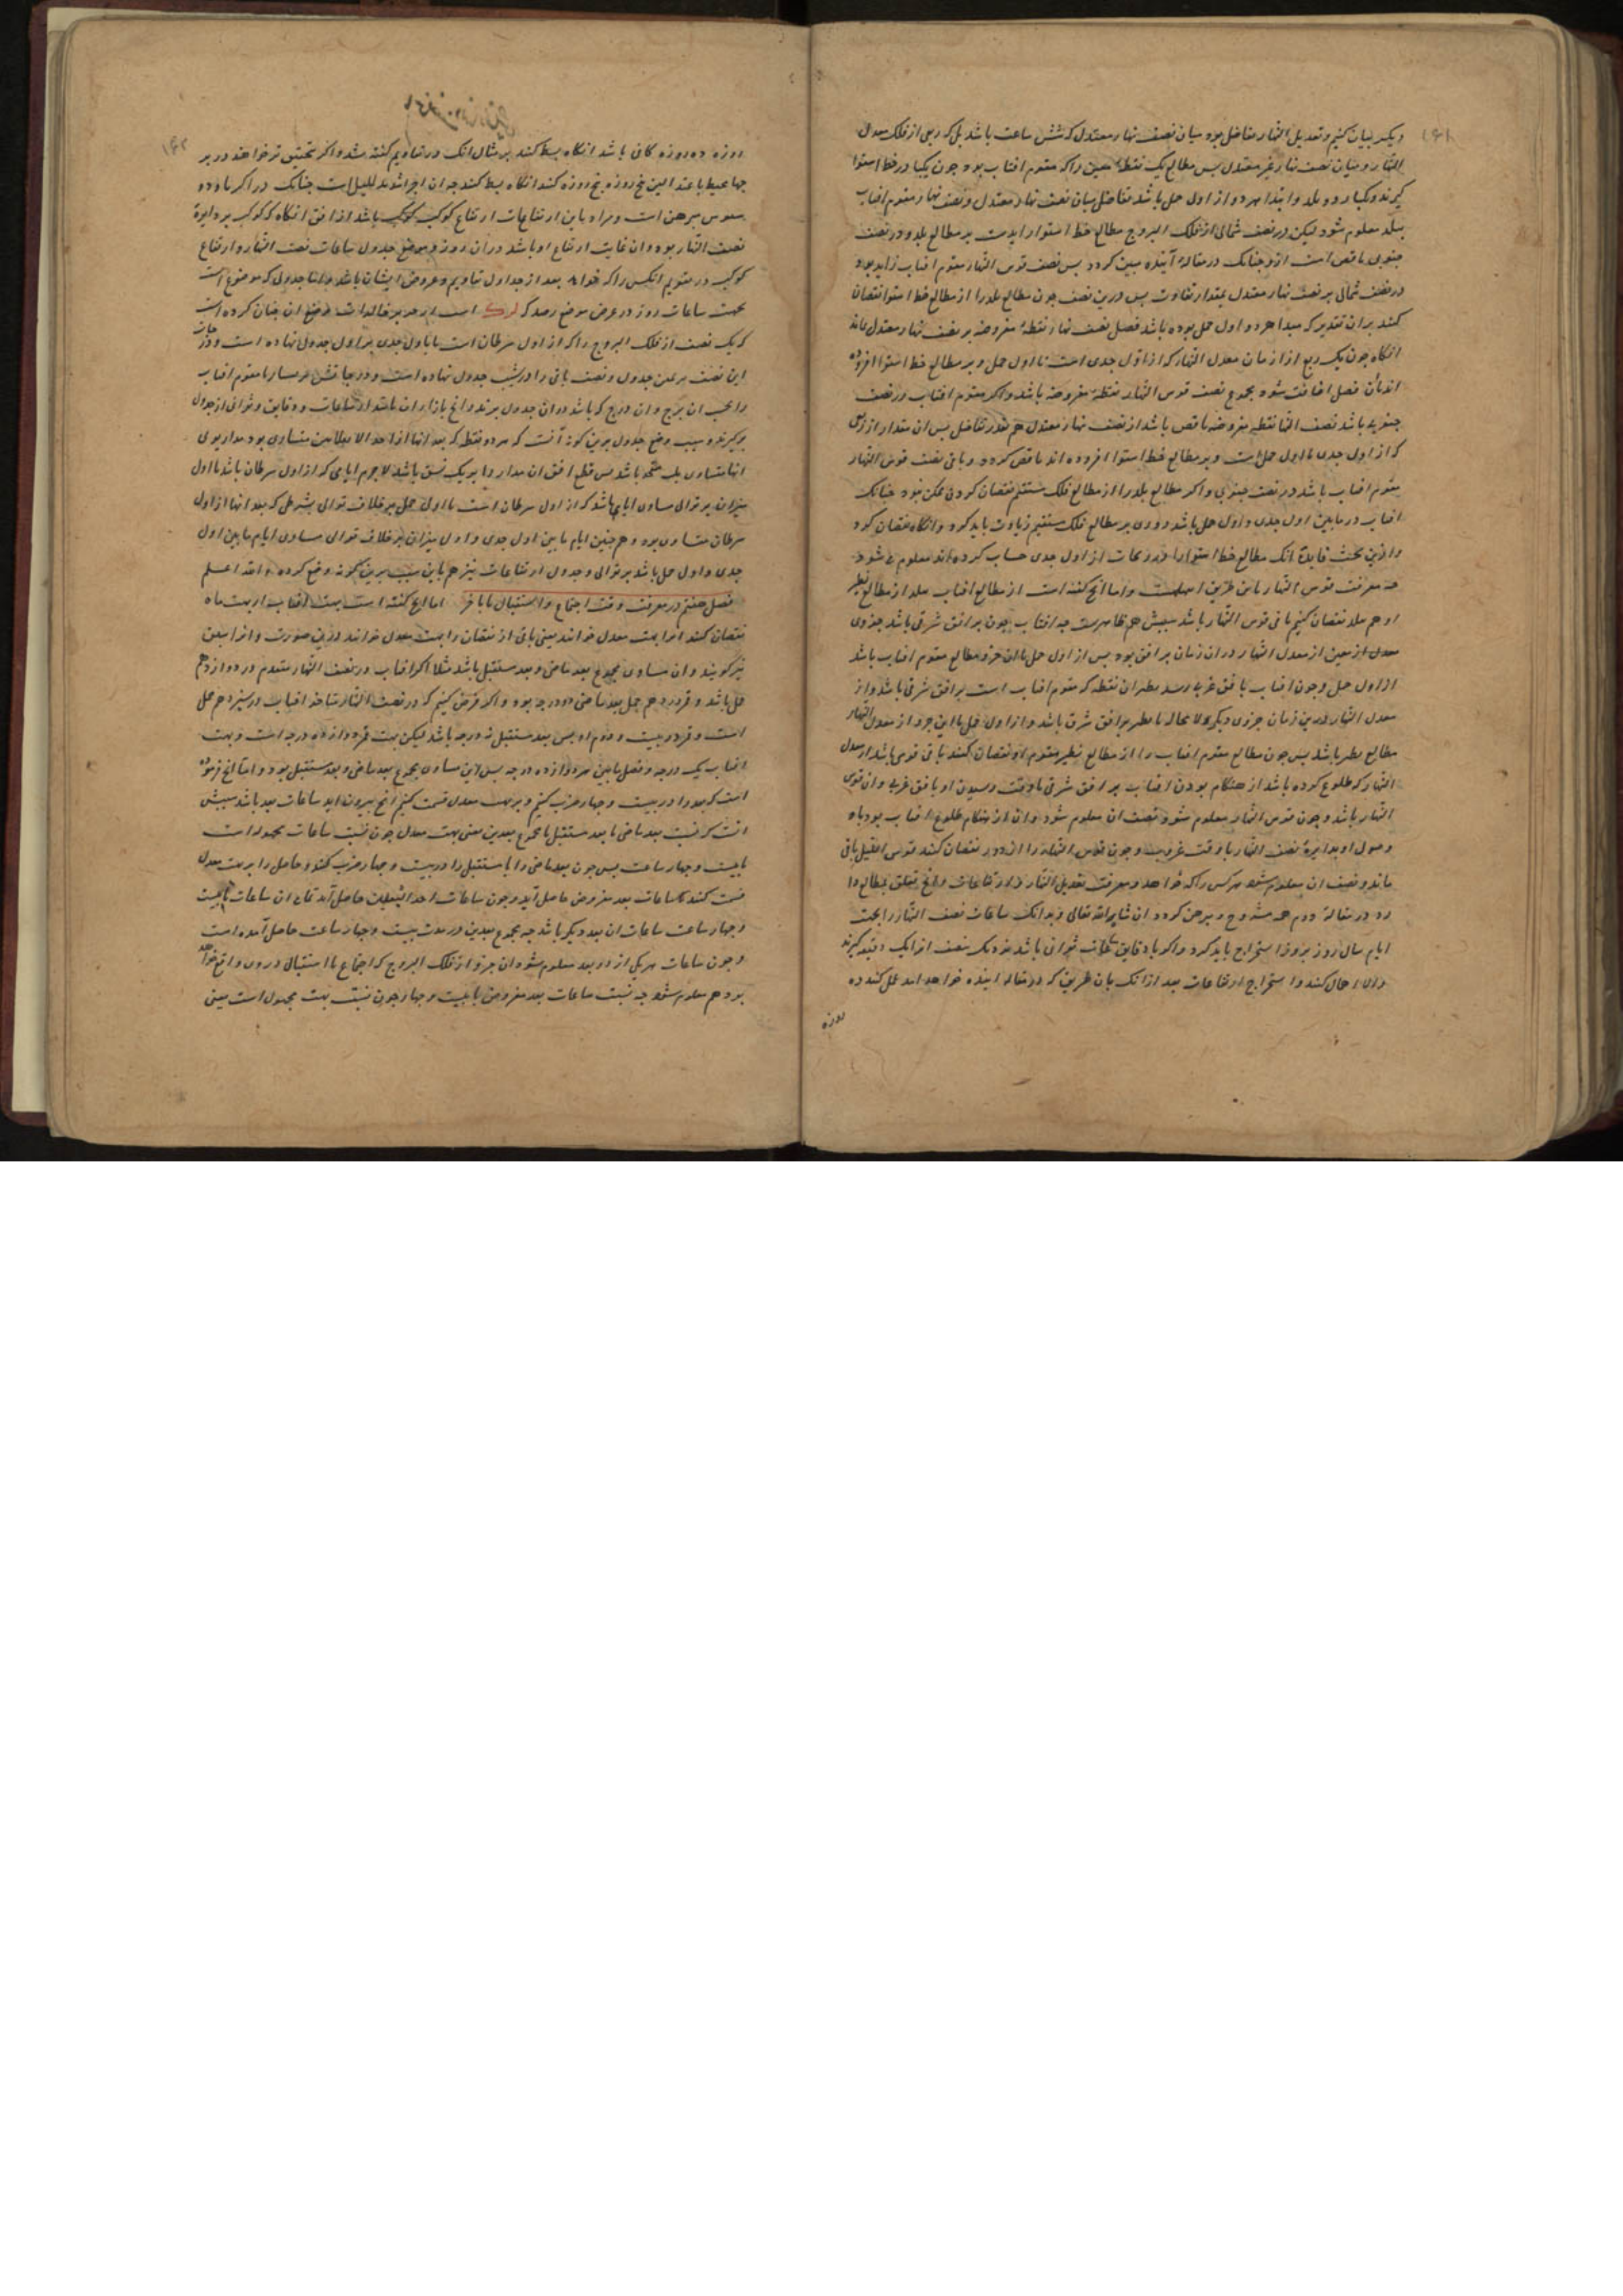 ۱۶۱
دیگر بیان کنیم و تعدیل النهار تفاضل بود میان نصف نهار معتدل که شش ساعت باشد بل که ربعی از فلک معدل
النهار و میان نصف نهار غیر معتدل پس مطالع یک نقطه معین را که مقوم افتاب بود چون یکبار در خط استوا
کیرند و یکبار در بلد و ابتدا هر دو از اول حمل باشد تفاضل میان نصف نهار معتدل و نصف نهار مقوم افتاب
ببلد معلوم شود لیکن در نصف شمالی از فلک البروج مطالع خط استوا زایدست بر مطالع بلد و در نصف
جنوبی ناقص است ازو چنانک در مقاله آینده مبین کردد پس نصف قوس النهار مقوم افتاب زاید بود
در نصف شمالی بر نصف نهار معتدل بمقدار تفاوت پس درین نصف چون مطالع بلد را از مطالع خط استوا نقصان
کنند بران تقدیر که مبدا هر دو اول حمل بوده باشد فصل نصف نهار نقطه مفروضه بر نصف نهار معتدل بماند
انکاه چون یک ربع از ازمان معدل النهار که از اول جدی است تا اول حمل و بر مطالع خط استوا افزوده
اند بآن فصل اضافت شود مجموع نصف قوس النهار نقطه مفروضه باشد و اکر مقوم افتاب در نصف
جنوبی باشد نصف النهار نقطه مفروضه ناقص باشد از نصف نهار معتدل هم بقدر تفاضل پس ان مقدار از ربعی
که از اول جدی تا اول حمل است و بر مطالع خط استوا افزوده اند ناقص کردد و باقی نصف قوس النهار
مقوم افتاب باشد در نصف جنوبی و اکر مطالع بلد را از مطالع فلک مستقیم نقصان کردن ممکن نبود چنانک
افتاب در مابین اول جدی و اول حمل باشد دوری بر مطالع فلک مستقیم زیادت باید کرد و انکاه نقصان کرد
و ازین بحث فایده انک مطالع خط استوا را در زیجات از اول جدی حساب کرده اند معلوم می شود
چه معرفت قوس النهار باین طریق اسهلست و اما انچ کفته است از مطالع افتاب ببلد از مطالع نظیر
او هم ببلد نقصان کنیم باقی قوس النهار باشد سببش هم ظاهرست چه افتاب چون بر افق شرقی باشد جزوی
معین از معدل النهار در ان زمان بر افق بود پس از اول حمل تا ان جزو مطالع مقوم افتاب باشد
از اول حمل و چون افتاب بافق غربی رسد نظیر ان نقطه که مقوم افتاب است بر افق شرقی باشد و از
معدل النهار درین زمان جزوی دیکر لا محاله با نظیر بر افق شرقی باشد و از اول حمل تا این جزو از معدل النهار
مطالع نظیر باشد پس چون مطالع مقوم افتاب را از مطالع نظیر مقوم او نقصان کنند باقی قوسی باشد از معدل
النهار که طلوع کرده باشد از هنکام بودن افتاب بر افق شرقی تا وقت رسیدن او بافق غربی و ان قوس
النهار باشد و چون قوس النهار معلوم شود نصف ان معلوم شود و ان از هنکام طلوع افتاب بود تا
وصول او بدایره نصف النهار یا وقت غروب و چون قوس النهار را از دور نقصان کنند قوس اللیل باقی
ماند و نصف ان معلوم شود هر کس را که خواهد و معرفت تعدیل النهار و ارتفاعات و انچ تعلق بمطالع دا
رد در مقاله دوم همه مشروح و مبرهن کردد ان شاء الله تعالی و بدانک ساعات نصف النهار را بجهت
ایام سال روز بروز استخراج باید کرد و اکر با دقایق ساعات ثوانی باشد نزدیک بنصف انرا یک دقیقه کیرند
و الا رها کنند و استخراج ارتفاعات بعد ازانک بان طریق که در مقاله اینده خواهد امد عمل کنند ده
روزه
۱۶۲
روزه ده روزه کافی باشد انکاه بسط کنند بر مثال انک در تقاویم کفته شد و اکر تحقیق تر خواهند در بر
مبرهن است و مراد باین ارتفاعات ارتفاع کوکب باشد از افق انکاه که کوکب بر دایره
نصف النهار بود و ان غایت ارتفاع او باشد در ان روز و موضع جدول ساعات نصف النهار و ارتفاع
کوکب در تقویم انکس را که خواهد بعد از جداول تقاویم و عروض ایشان باشد و اما جدولی که موضوع است
بجهت ساعات روز در عرض موضع رصد که لرک است از جزیر خالدات وضع ان چنان کرده است
که یک نصف از فلک البروج را که از اول سرطان است تا باول جدی بر اول جدول نهاده است و درجات
این نصف بر یمین جدول و نصف باقی را در شیب جدول نهاده است و درجاتش بر یسار تا مقوم افتاب
را بحسب ان برج و ان درج که باشد در ان جدول برند و انچ بازاء ان باشد از ساعات و دقایق و ثوانی از جدول
برکیرند و سبب وضع جدول برین کونه آنست که هر دو نقطه که بعد انها از احد الانقلابین متساوی بود مدار یومی
انها متساوی بل متحد باشد پس قطع افق ان مدار را بر یک نسق باشد لاجرم ایامی که از اول سرطان باشد تا اول
میزان بر توالی مساوی ایامی باشد که از اول سرطان است تا اول حمل بر خلاف توالی بشرطی که بعد انها از اول
سرطان متساوی بود و هم چنین ایام مابین اول جدی و اول میزان بر خلاف توالی مساوی ایام مابین اول
جدی و اول حمل باشد بر توالی و جدول ارتفاعات نیز هم باین سبب برین کونه وضع کرده و الله اعلم
فصل هفتم در معرفت وقت اجتماع و استقبال تا باخر اما انچ کفته است بهت افتاب از بهت ماه
نقصان کنند انرا بهت معدل خوانند یعنی باقی از نقصان را بهت معدل خوانند درین صورت و انرا سبق
نیز کویند و ان مساوی مجموع بعد ماضی و بعد مستقبل باشد مثلا اکر افتاب در نصف النهار متقدم در دوازدهم
حمل باشد و قمر در دهم حمل بعد ماضی دو درجه بود و اکر فرض کنیم که در نصف النهار متاخر افتاب در سیزدهم حمل
است و قمر در بیست و دوم او پس بعد مستقبل نه درجه باشد لیکن بهت قمر دوازده درجه است و بهت
افتاب یک درجه و فصل مابین هر دو یازده درجه پس این مساوی مجموع بعد ماضی و بعد مستقبل بود و اما انچ فرموده
است که بعد را در بیست و چهار ضرب کنیم و بر بهت معدل قسمت کنیم انچ بیرون اید ساعات بعد باشد سببش
انست که نسبت بعد ماضی یا بعد مستقبل با مجموع بعدین یعنی بهت معدل چون نسبت ساعات مجهوله است
با بیست و چهار ساعت پس چون بعد ماضی را یا مستقبل را در بیست و چهار ضرب کنند و حاصل را بر بهت معدل
قسمت کنند ساعات بعد مفروض حاصل آید و چون ساعات احد البعدین حاصل آید تمام ان ساعات تا بیست
و چهار ساعت ساعات ان بعد دیکر باشد چه مجموع بعدین در مدت بیست و چهار ساعت حاصل آمده است
و چون ساعات هر یکی از دو بعد معلوم شود ان جزو از فلک البروج که اجتماع یا استقبال در وی واقع خواهد
بود هم معلوم شود چه نسبت ساعات بعد مفروض با بیست و چهار چون نسبت بهت مجهول است یعنی